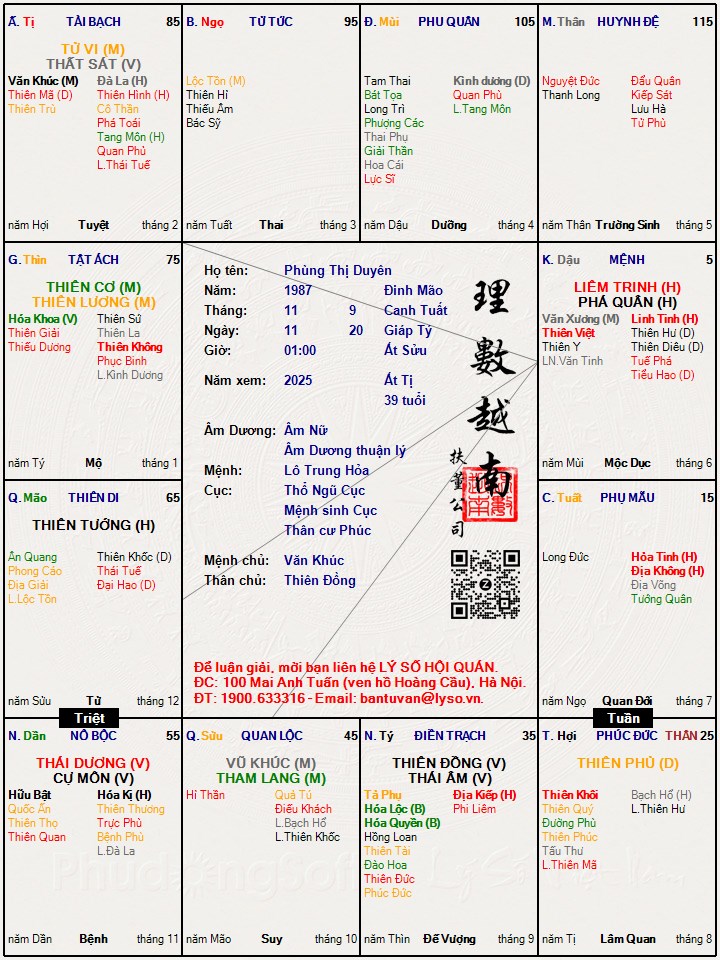 Ấ. Tị TÀI BẠCH 85
TỬ VI (M)
THẤT SÁT (V)
Văn Khúc (M) Đà La (H)
Thiên Mã (D) Thiên Hình (H)
Thiên Trù Cô Thần
Phá Toái
Tang Môn (H)
Quan Phủ
L.Thái Tuế
năm Hợi Tuyệt tháng 2
B. Ngọ TỬ TỨC 95
Lộc Tồn (M)
Thiên Hỉ
Thiếu Âm
Bác Sỹ
năm Tuất Thai tháng 3
Đ. Mùi PHU QUÂN 105
Tam Thai Kình dương (D)
Bát Tọa Quan Phù
Long Trì L.Tang Môn
Phượng Các
Thai Phụ
Giải Thần
Hoa Cái
Lực Sĩ
năm Dậu Dưỡng tháng 4
M. Thân HUYNH ĐỆ 115
Nguyệt Đức Đẩu Quân
Thanh Long Kiếp Sát
Lưu Hà
Tử Phù
năm Thân Trường Sinh tháng 5
G. Thìn TẬT ÁCH 75
THIÊN CƠ (M)
THIÊN LƯƠNG (M)
Hóa Khoa (V) Thiên Sứ
Thiên Giải Thiên La
Thiếu Dương Thiên Không
Phục Binh
L.Kình Dương
năm Tý Mộ tháng 1
Họ tên: Phùng Thị Duyên
Năm: 1987 Đinh Mão
Tháng: 11 9 Canh Tuất
Ngày: 11 20 Giáp Tý
Giờ: 01:00 Ất Sửu
Năm xem: 2025 Ất Tị
39 tuổi
Âm Dương: Âm Nữ
Âm Dương thuận lý
Mệnh: Lô Trung Hỏa
Cục: Thổ Ngũ Cục
Mệnh sinh Cục
Thân cư Phúc
Mệnh chủ: Văn Khúc
Thân chủ: Thiên Đồng
理數越南
扶董公司
Để luận giải, mời bạn liên hệ LÝ SỐ HỘI QUÁN.
ĐC: 100 Mai Anh Tuấn (ven hồ Hoàng Cầu), Hà Nội.
ĐT: 1900.633316 - Email: bantuvan@lyso.vn.
K. Dậu MỆNH 5
LIÊM TRINH (H)
PHÁ QUÂN (H)
Văn Xương (M) Linh Tinh (H)
Thiên Việt Thiên Hư (D)
Thiên Y Thiên Diêu (D)
LN.Văn Tinh Tuế Phá
Tiểu Hao (D)
năm Mùi Mộc Dục tháng 6
Q. Mão THIÊN DI 65
THIÊN TƯỚNG (H)
Ân Quang Thiên Khốc (D)
Phong Cáo Thái Tuế
Địa Giải Đại Hao (D)
L.Lộc Tồn
năm Sửu Tử tháng 12
C. Tuất PHỤ MẪU 15
Long Đức Hỏa Tinh (H)
Địa Không (H)
Địa Võng
Tướng Quân
năm Ngọ Quan Đới tháng 7
Triệt
Tuần
N. Dần NÔ BỘC 55
THÁI DƯƠNG (V)
CỰ MÔN (V)
Hữu Bật Hóa Kị (H)
Quốc Ấn Thiên Thương
Thiên Thọ Trực Phù
Thiên Quan Bệnh Phù
L.Đà La
năm Dần Bệnh tháng 11
Q. Sửu QUAN LỘC 45
VŨ KHÚC (M)
THAM LANG (M)
Hỉ Thần Quả Tú
Điếu Khách
L.Bạch Hổ
L.Thiên Khốc
năm Mão Suy tháng 10
N. Tý ĐIỀN TRẠCH 35
THIÊN ĐỒNG (V)
THÁI ÂM (V)
Tả Phụ Địa Kiếp (H)
Hóa Lộc (B) Phi Liêm
Hóa Quyền (B)
Hồng Loan
Thiên Tài
Đào Hoa
Thiên Đức
Phúc Đức
năm Thìn Đế Vượng tháng 9
T. Hợi PHÚC ĐỨC THÂN 25
THIÊN PHỦ (D)
Thiên Khôi Bạch Hổ (H)
Thiên Quý L.Thiên Hư
Đường Phù
Thiên Phúc
Tấu Thư
L.Thiên Mã
năm Tị Lâm Quan tháng 8